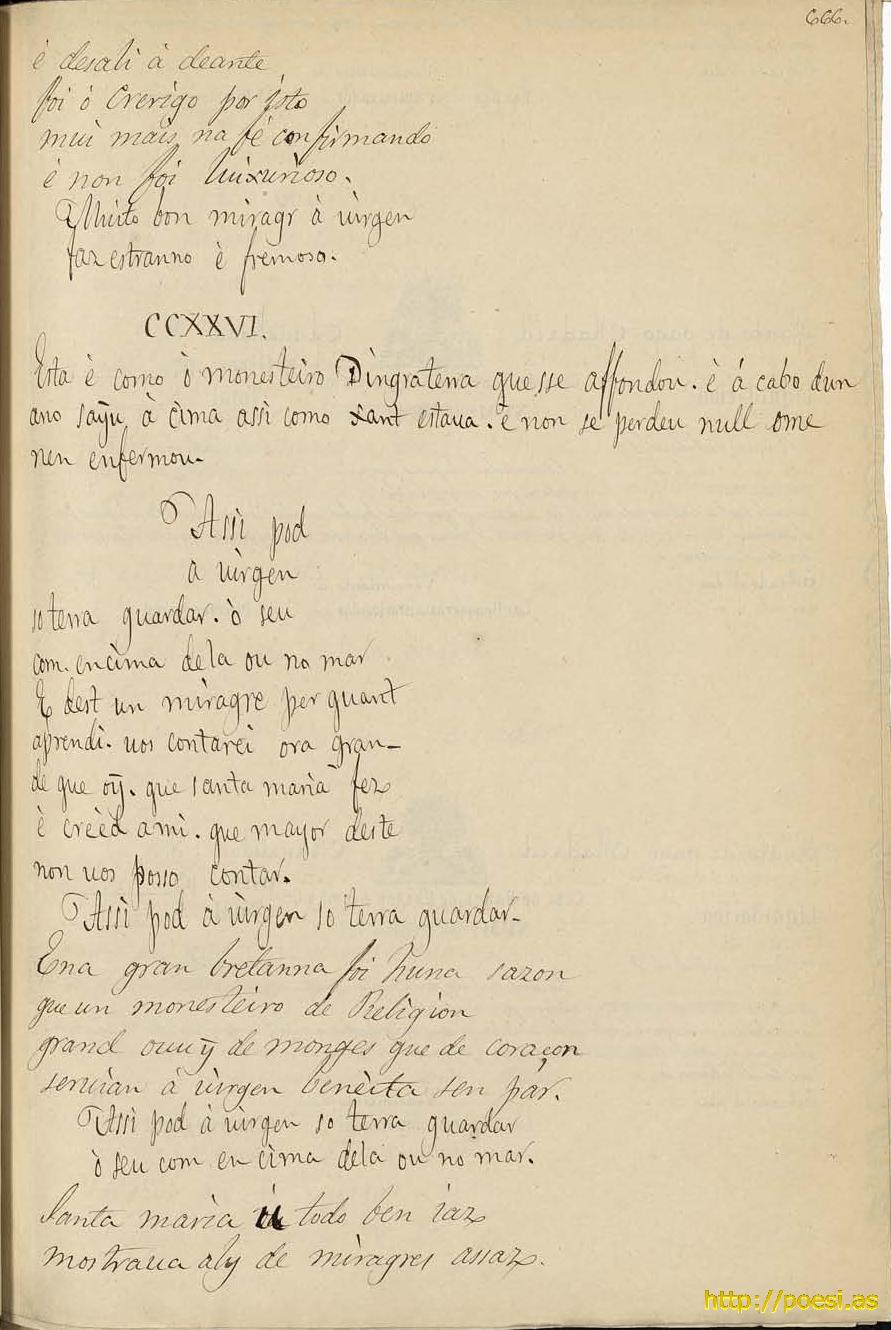 666.
è desali à deante
foi ò crerigo por isto
mui mais na fè confirmando
è non foi luixurioso.
Muito bon miragr à uirgen
faz estranno è fremoso.
CCXXVI.
Esta è como ò monesteiro Dingraterra que sse affondou. è á cabo dun
ano saỹu à cima assi como xant estaua. è non se perdeu null ome
nen enfermou.
Assi pod
a uirgen
so terra guardar. ò seu
com. encima dela ou no mar
E dest un miragre per quant
aprendi. uos contarei ora gran-
de que oỹ. que santa maria fez
è creed ami. que mayor deste
non uos posso contar.
Assi pod à uirgen so terra guardar-
Ena gran bretanna foi huna sazon
que un monesteiro de Religion
grand ouuỹ de monges que de coraçon
seruian á uirgen beneita sen pár.
Assi pod à uirgen so terra guardar
ò seu com en cima dela ou no mar.
Santa maria ú todo ben iaz
mostraua aly de miragres assaz.
http://poesi.as